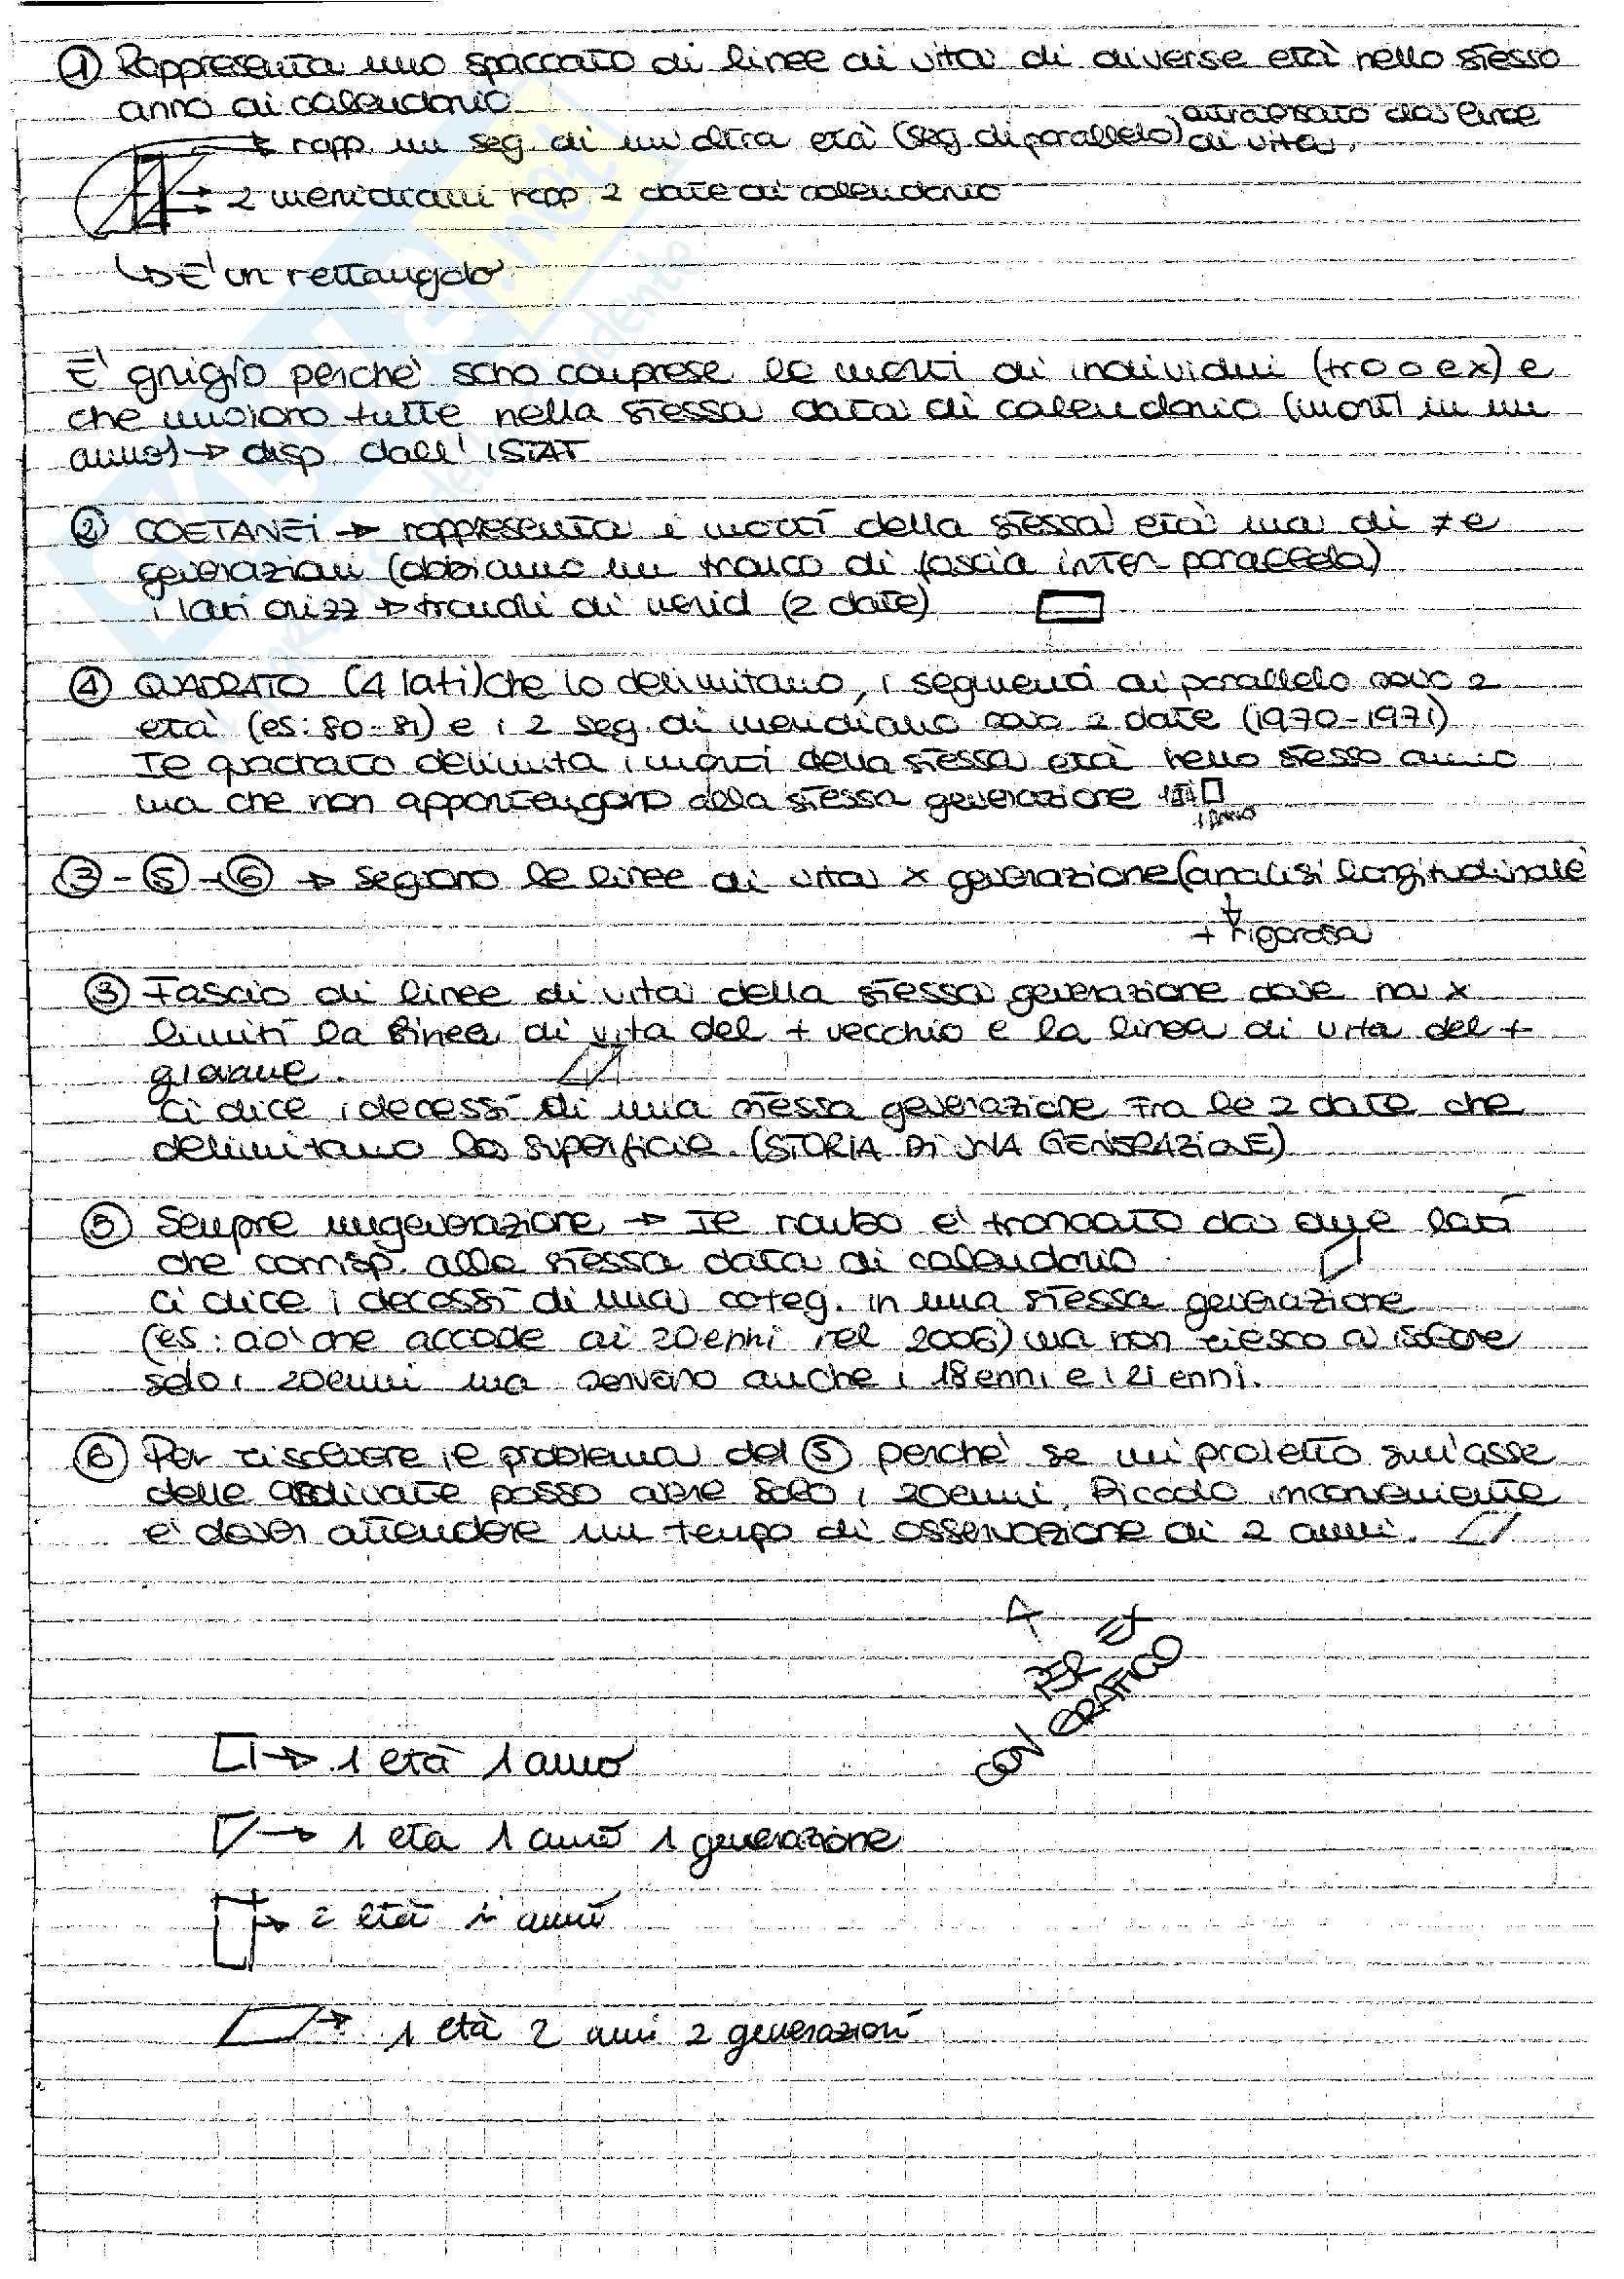 ① Rappresenta uno spaccato di linee di vita di diverse età nello stesso
anno di calendario
→ rapp. un seg. di un'altra età (seg. di parallelo) attraversato da linee di vita.
→ 2 meridiani rapp. 2 date di calendario
↳ È un rettangolo
È grigio perchè sono comprese le morti di individui (tra 0 e x) e
che muoiono tutte nella stessa data di calendario (morti in un
anno) → disp. dall'ISTAT
② COETANEI → rappresenta i morti della stessa età ma di ≠ e
generazioni (abbiamo un tronco di fascia inter parallela)
i lati orizz → tronchi di merid (2 date)
④ QUADRATO (4 lati) che lo delimitano, i segmenti di parallelo sono 2
età (es: 80-81) e i 2 seg. di meridiano sono 2 date (1970-1971)
Il quadrato delimita i morti della stessa età nello stesso anno
ma che non appartengono alla stessa generazione
1 anno
③ - ⑤ - ⑥ → Segiono le linee di vita x generazione (analisi longitudinale
↓
+ rigorosa
③ Fascio di linee di vita della stessa generazione dove ha x
limiti la linea di vita del + vecchio e la linea di vita del +
giovane.
Ci dice i decessi di una stessa generazione tra le 2 date che
delimitano la superficie. (STORIA DI UNA GENERAZIONE)
⑤ Sempre ungenerazione → Il rombo è troncato da due lati
che corrisp. alla stessa data di calendario
Ci dice i decessi di una categ. in una stessa generazione
(es: ciò che accade ai 20enni nel 2006) ma non riesco a isolare
solo i 20enni ma servono anche i 18enni e i 21enni.
⑥ Per risolvere il problema del ⑤ perchè se mi proietto sull'asse
delle ordinate posso avere solo i 20enni. Piccolo inconveniente
è dover attendere un tempo di osservazione di 2 anni.
PER ES
CON GRAFICO
→ 1 età 1 anno
→ 1 età 1 anno 1 generazione
→ 2 età 1 anno
→ 1 età 2 anni 2 generazioni